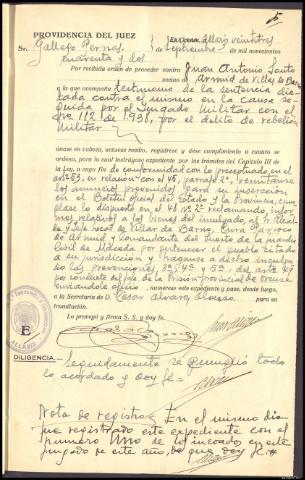 PROVIDENCIA DEL JUEZ
Allariz veintitres
Sr. Gallego Pernas. de Septiembre de mil novecientos
cuarenta y dos.
Por recibida orden de proceder contra Juan Antonio Souto
vecino de Arnuid de Villar de Barrio
a la que acompaña testimonio de la sentencia dic-
tada contra el mismo en la causa se-
guida por el Juzgado Militar con el
nº 112 de 1.938, por el delito de rebelión
Militar
únase en cabeza, acúsese recibo, regístrese y dése cumplimiento a cuanto se
ordena, para lo cual instrúyase expediente por los trámites del Capítulo III de
la Ley, a cuyo fin de conformidad con lo preceptuado en el
artº 53, en relación con el 45, párrafo 2º, remítanse
los anuncios prevenidos para su inserción
en el Boletín Oficial del Estado y la Provincia, cum-
plase lo dispuesto en el 48 reclamando infor-
mes relativos a los bienes del inculpado al Sr. Alcal-
de y Jefe local de Villar de Barrio, Cura Párroco
de Arnuid y Comandante del Puesto de la Guardia
Civil de Maceda por pertenecer el pueblo citado
a su jurisdicción y háganse a dicho inculpa-
do las prevenciones 3ª, 4ª y 5ª del artº 49
por conducto del de la Prisión provincial de Orense
enviándole oficio, numérese este expediente y pase, desde luego,
a la Secretaría de D. Cesar Alvarez Alonso para su
tramitación.
Lo proveyó y firma S. S.; doy fe.
ALLARIZ
DILIGENCIA.- Seguidamente se cumplió todo
lo acordado y doy fe=
Nota de registro/ En el mismo dia
fue registrado este expediente con el
número Uno de los incoados en este
juzgado de este año, de que doy fe.=